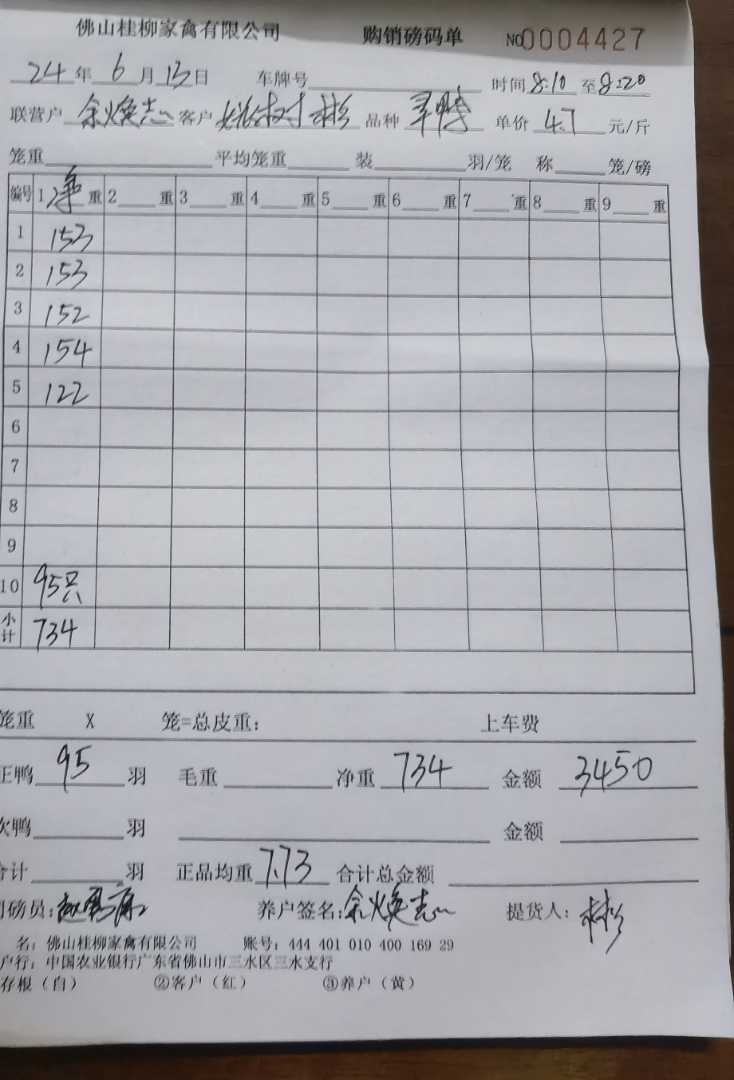 佛山桂柳家禽有限公司 购销磅码单 NO0004427
24年6月13日 车牌号 时间8:10至8:20
联营户 余焕志 客户 树彬 品种 鸭 单价 4.7 元/斤
笼重 平均笼重 装 羽/笼 称 笼/磅
编号 1净重 2 重 3 重 4 重 5 重 6 重 7 重 8 重 9 重
1 153
2 153
3 152
4 154
5 122
6
7
8
9
10 95只
小计 734
笼重 X 笼=总皮重: 上车费
正鸭 95 羽 毛重 净重 734 金额 3450
次鸭 羽 金额
合计 羽 正品均重 7.73 合计总金额
司磅员: 养户签名: 余焕志 提货人: 彬
名: 佛山桂柳家禽有限公司 账号: 444 401 010 400 169 29
户行: 中国农业银行广东省佛山市三水区三水支行
存根(白) ②客户(红) ③养户(黄)